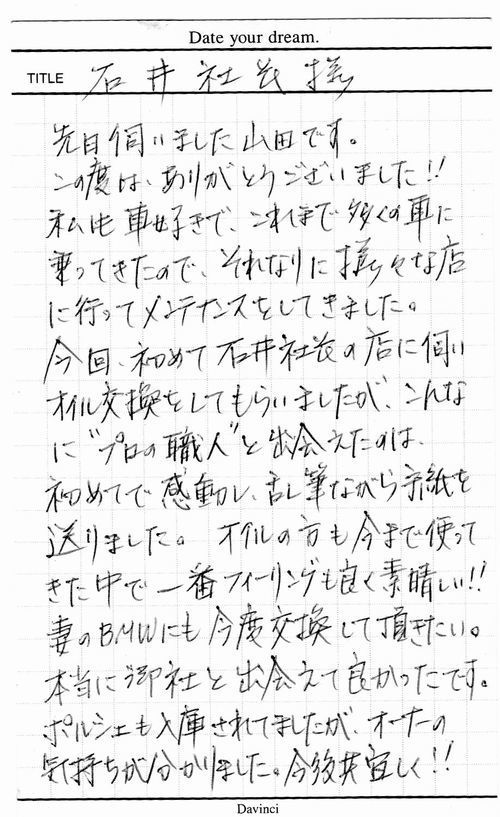 Date your dream.
TITLE 石井社長様
先日伺いました山田です。
この度は、ありがとうございました!!
私も車好きで、これまで多くの車に
乗ってきたので、それなりに様々な店
に行ってメンテナンスをしてきました。
今回、初めて石井社長の店に伺い
オイル交換をしてもらいましたが、こんな
に"プロの職人"と出会えたのは、
初めてで感動し、乱筆ながら手紙を
送りました。 オイルの方も今まで使って
きた中で一番フィーリングも良く素晴しい!!
妻のBMWにも今度交換して頂きたい。
本当に御社と出会えて良かったです。
ポルシェも入庫されてましたが、オーナーの
気持ちが分かりました。今後共宜しく!!
Davinci